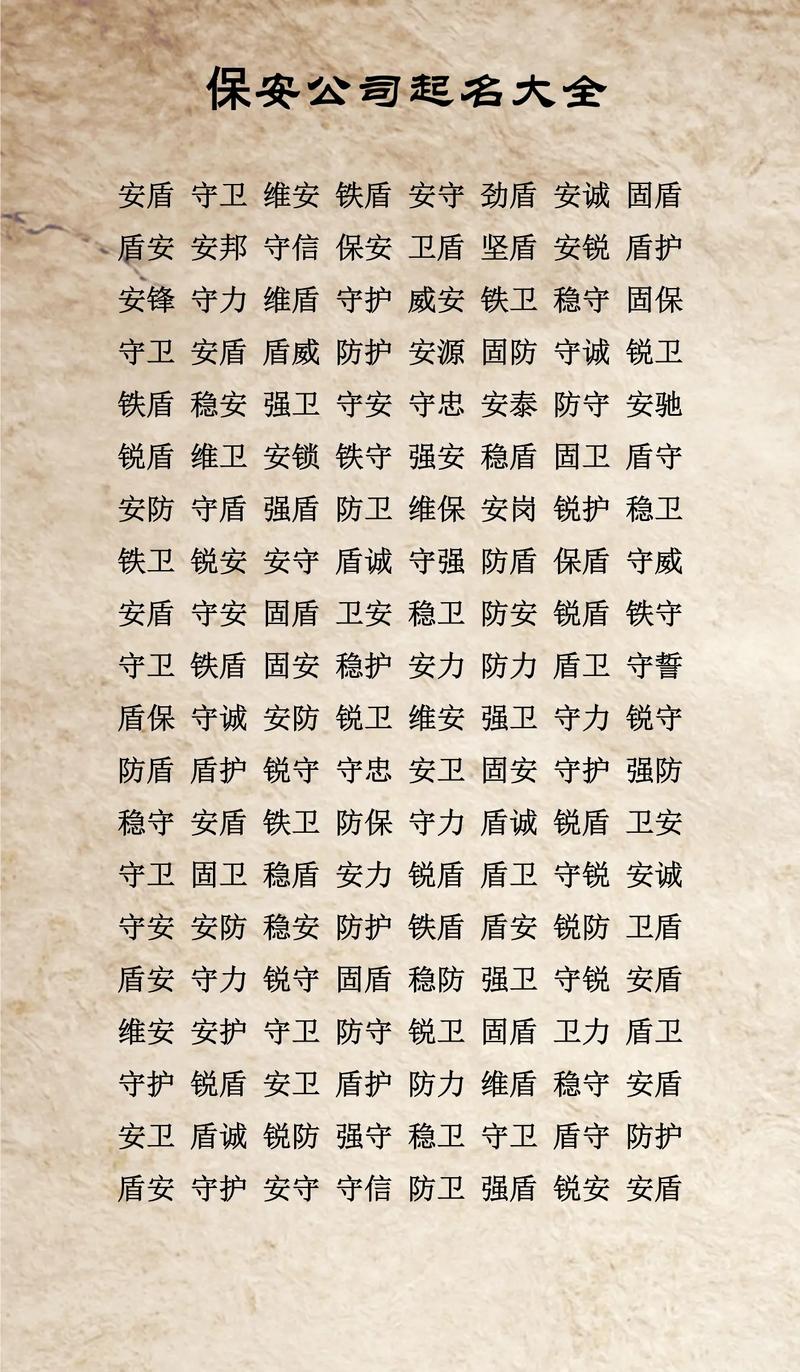 保安公司起名大全
安盾 守卫 维安 铁盾 安守 劲盾 安诚 固盾
盾安 安邦 守信 保安 卫盾 坚盾 安锐 盾护
安锋 守力 维盾 守护 威安 铁卫 稳守 固保
守卫 安盾 盾威 防护 安源 固防 守诚 锐卫
铁盾 稳安 强卫 守安 守忠 安泰 防守 安驰
锐盾 维卫 安锁 铁守 强安 稳盾 固卫 盾守
安防 守盾 强盾 防卫 维保 安岗 锐护 稳卫
铁卫 锐安 安守 盾诚 守强 防盾 保盾 守威
安盾 守安 固盾 卫安 稳卫 防安 锐盾 铁守
守卫 铁盾 固安 稳护 安力 防力 盾卫 守誓
盾保 守诚 安防 锐卫 维安 强卫 守力 锐守
防盾 盾护 锐守 守忠 安卫 固安 守护 强防
稳守 安盾 铁卫 防保 守力 盾诚 锐盾 卫安
守卫 固卫 稳盾 安力 锐盾 盾卫 守锐 安诚
守安 安防 稳安 防护 铁盾 盾安 锐防 卫盾
盾安 守力 锐守 固盾 稳防 强卫 守锐 安盾
维安 安护 守卫 防守 锐卫 固盾 卫力 盾卫
守护 锐盾 安卫 盾护 防力 维盾 稳守 安盾
安卫 盾诚 锐防 强守 稳卫 守卫 盾守 防护
盾安 守护 安守 守信 防卫 强盾 锐安 安盾